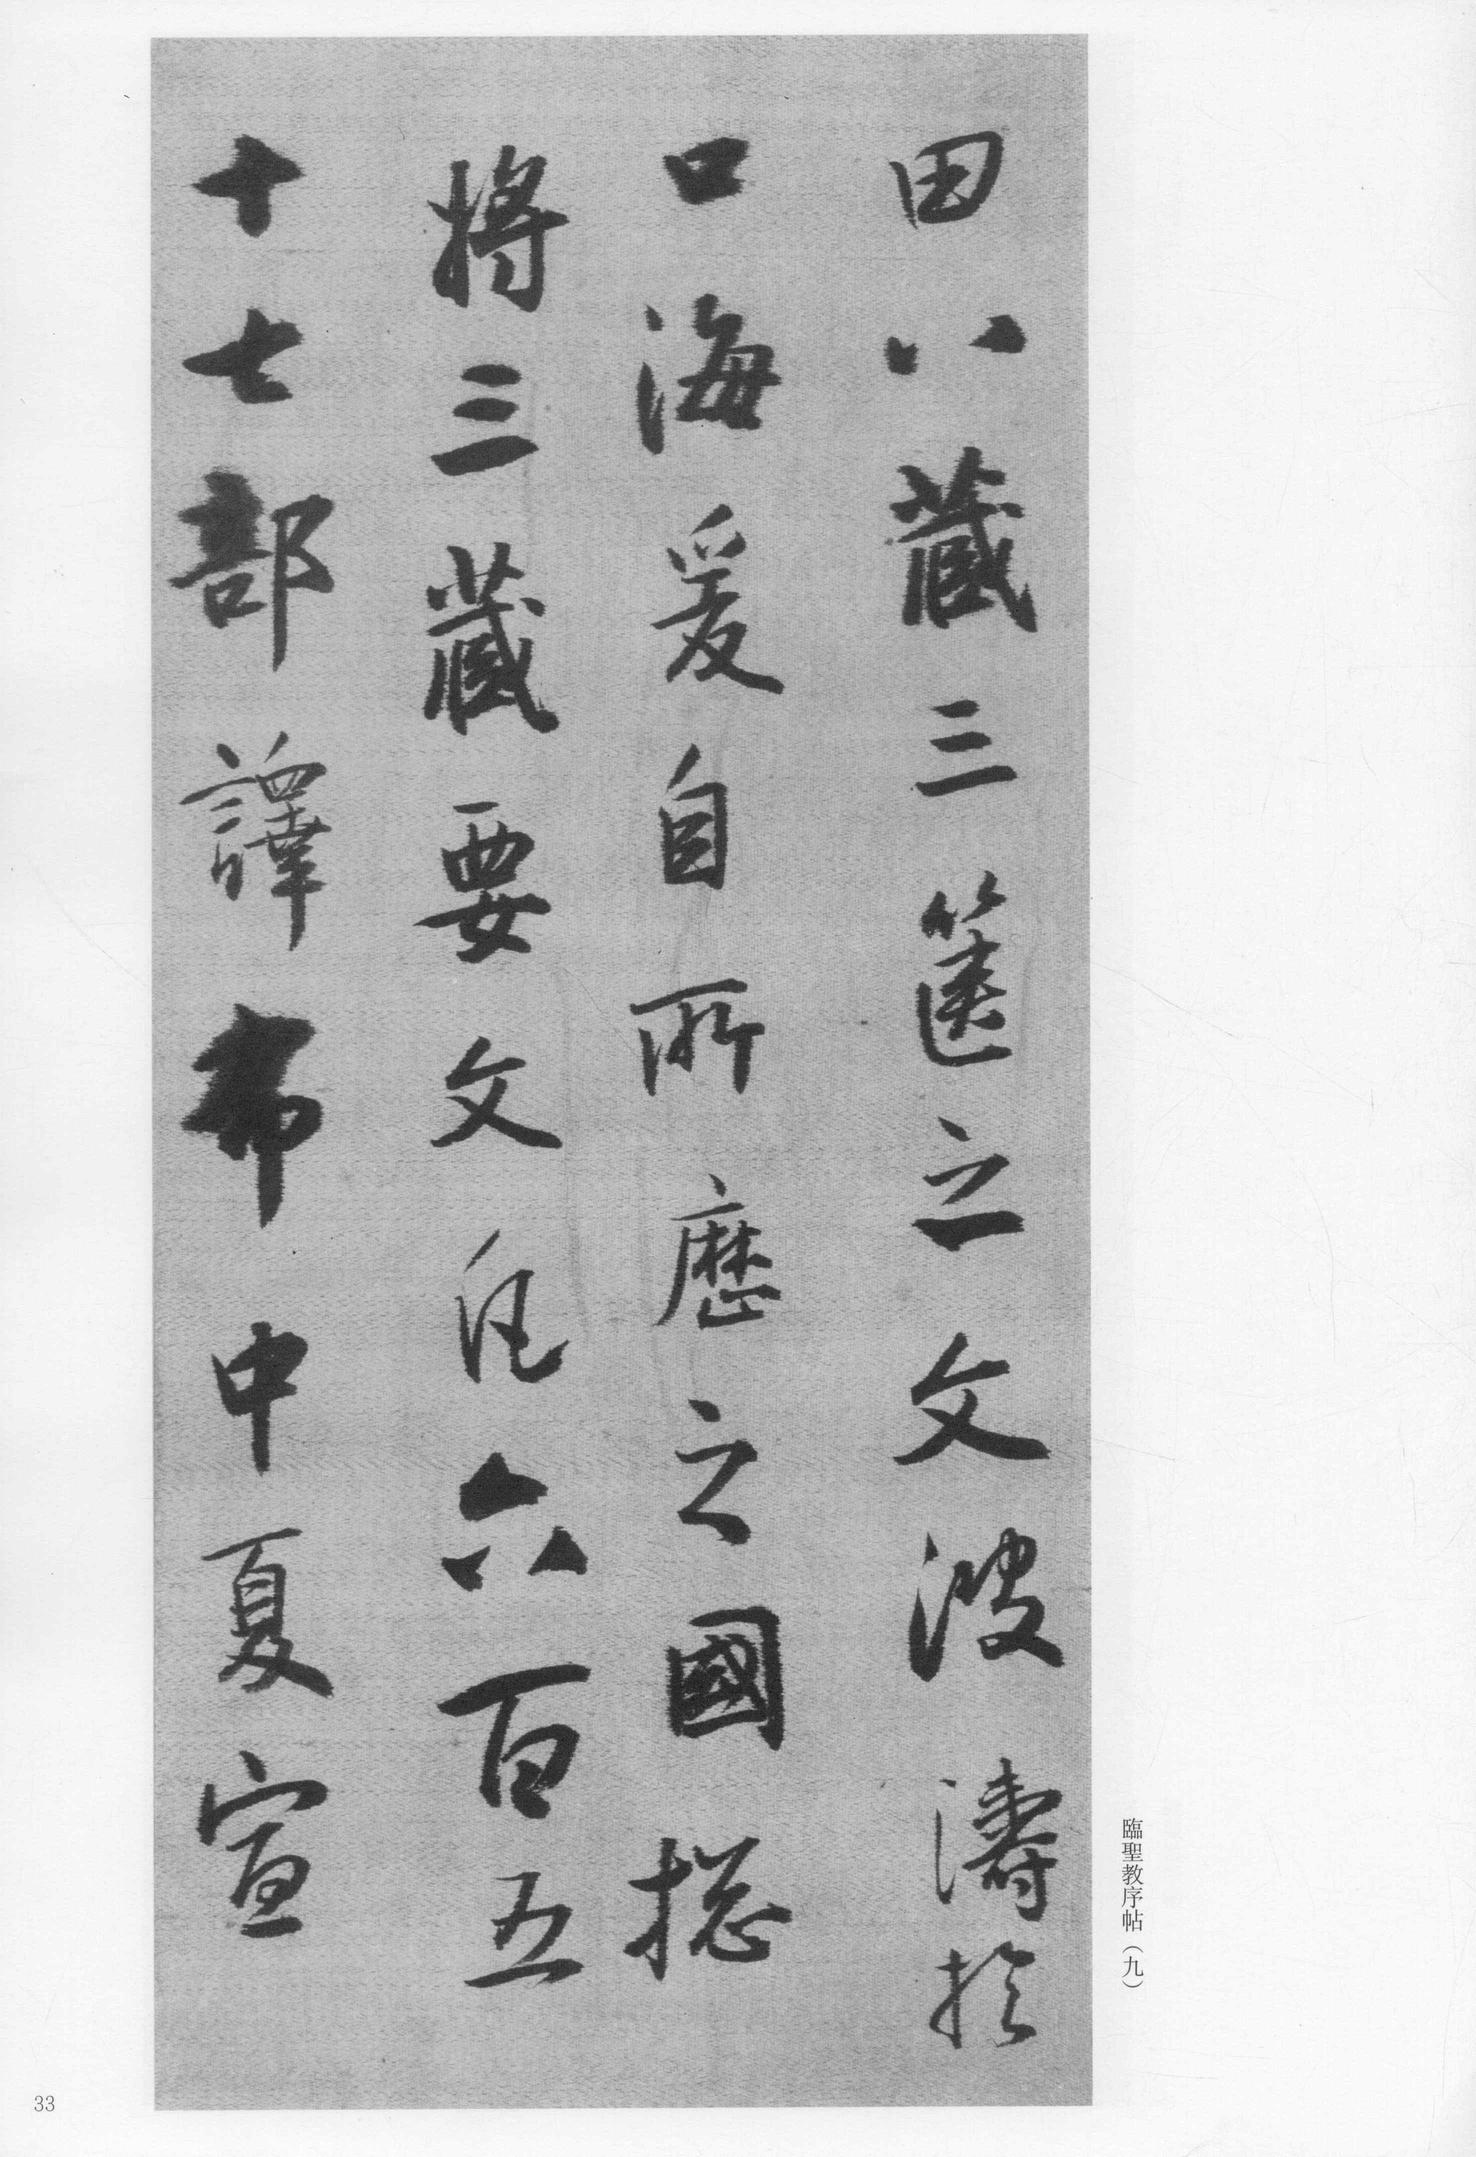 田八藏三篋之文波濤於
口海爰自所歷之國揔
將三藏要文凡六百五
十七部譯布中夏宣
臨聖教序帖（九）
33